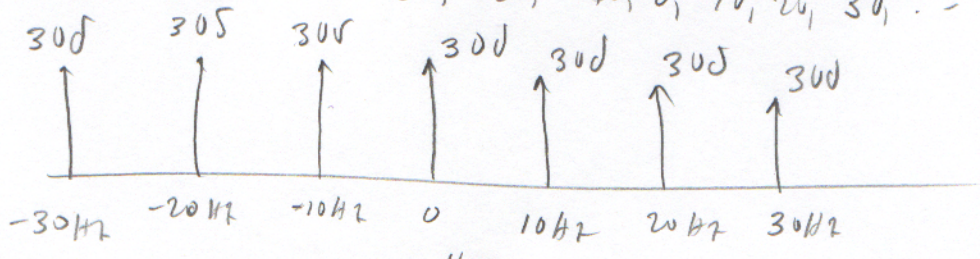 30, . -
30δ 30δ 30δ 30δ 30δ 30δ 30δ
-30Hz -20Hz -10Hz 0 10Hz 20Hz 30Hz